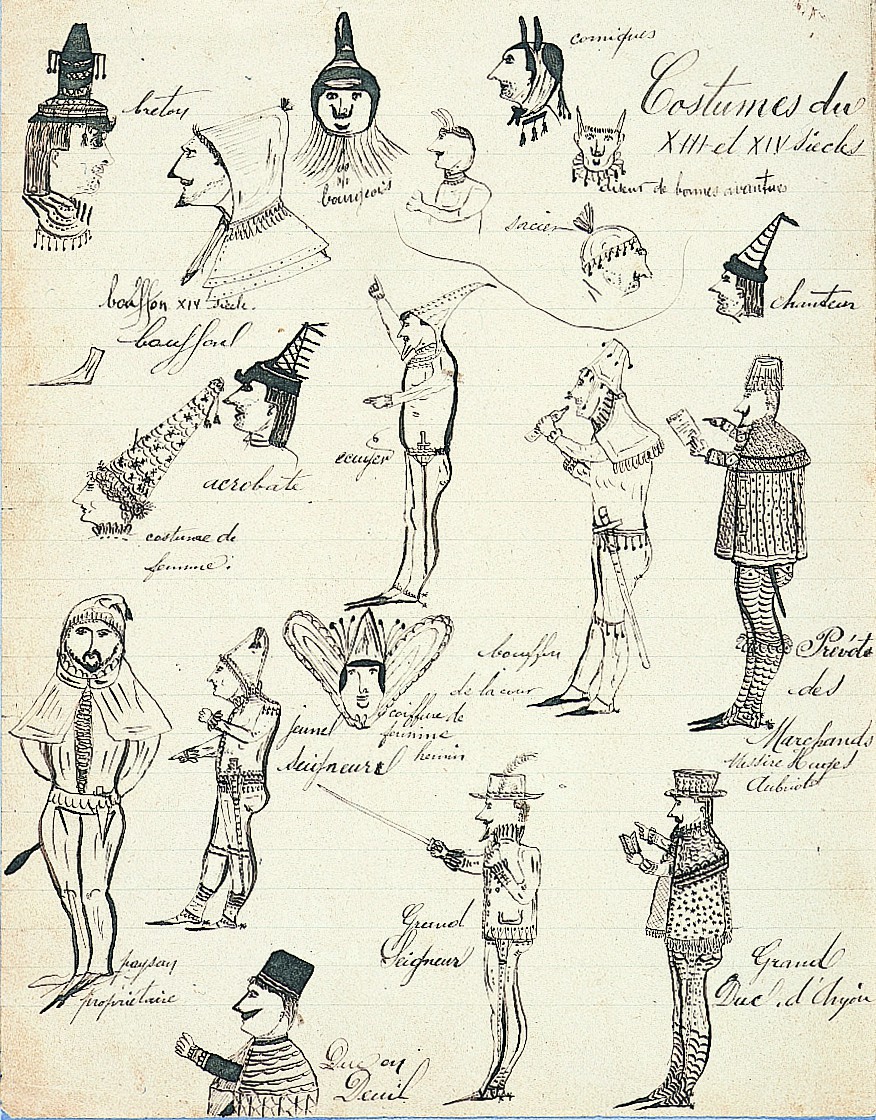 comiques
Costumes du
XIII et XIV siècles
breton
bourgeois
diseur de bonnes aventures
sorcier
chanteur
bouffon XIV siècle.
bouffon
ecuyer
acrobate
costume de
femme.
bouffon
de la cour
Prévôts
des
Marchands
Messire Hugues
Aubriot
jeune
Seigneur
coiffure de
femme
henin
Grand
Seigneur
paysan
propriétaire
Grand
Duc d'Anjou
Duc en
Deuil